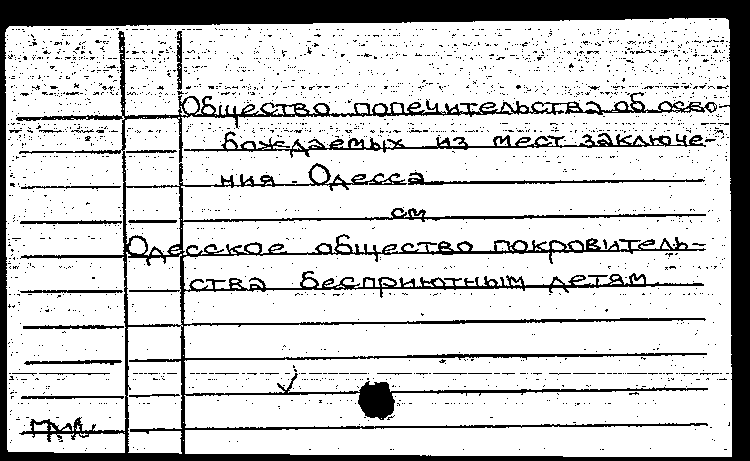 Общество попечительства об осво-
бождаемых из мест заключе-
ния - Одесса
см.
Одесское общество покровитель-
ства бесприютным детям